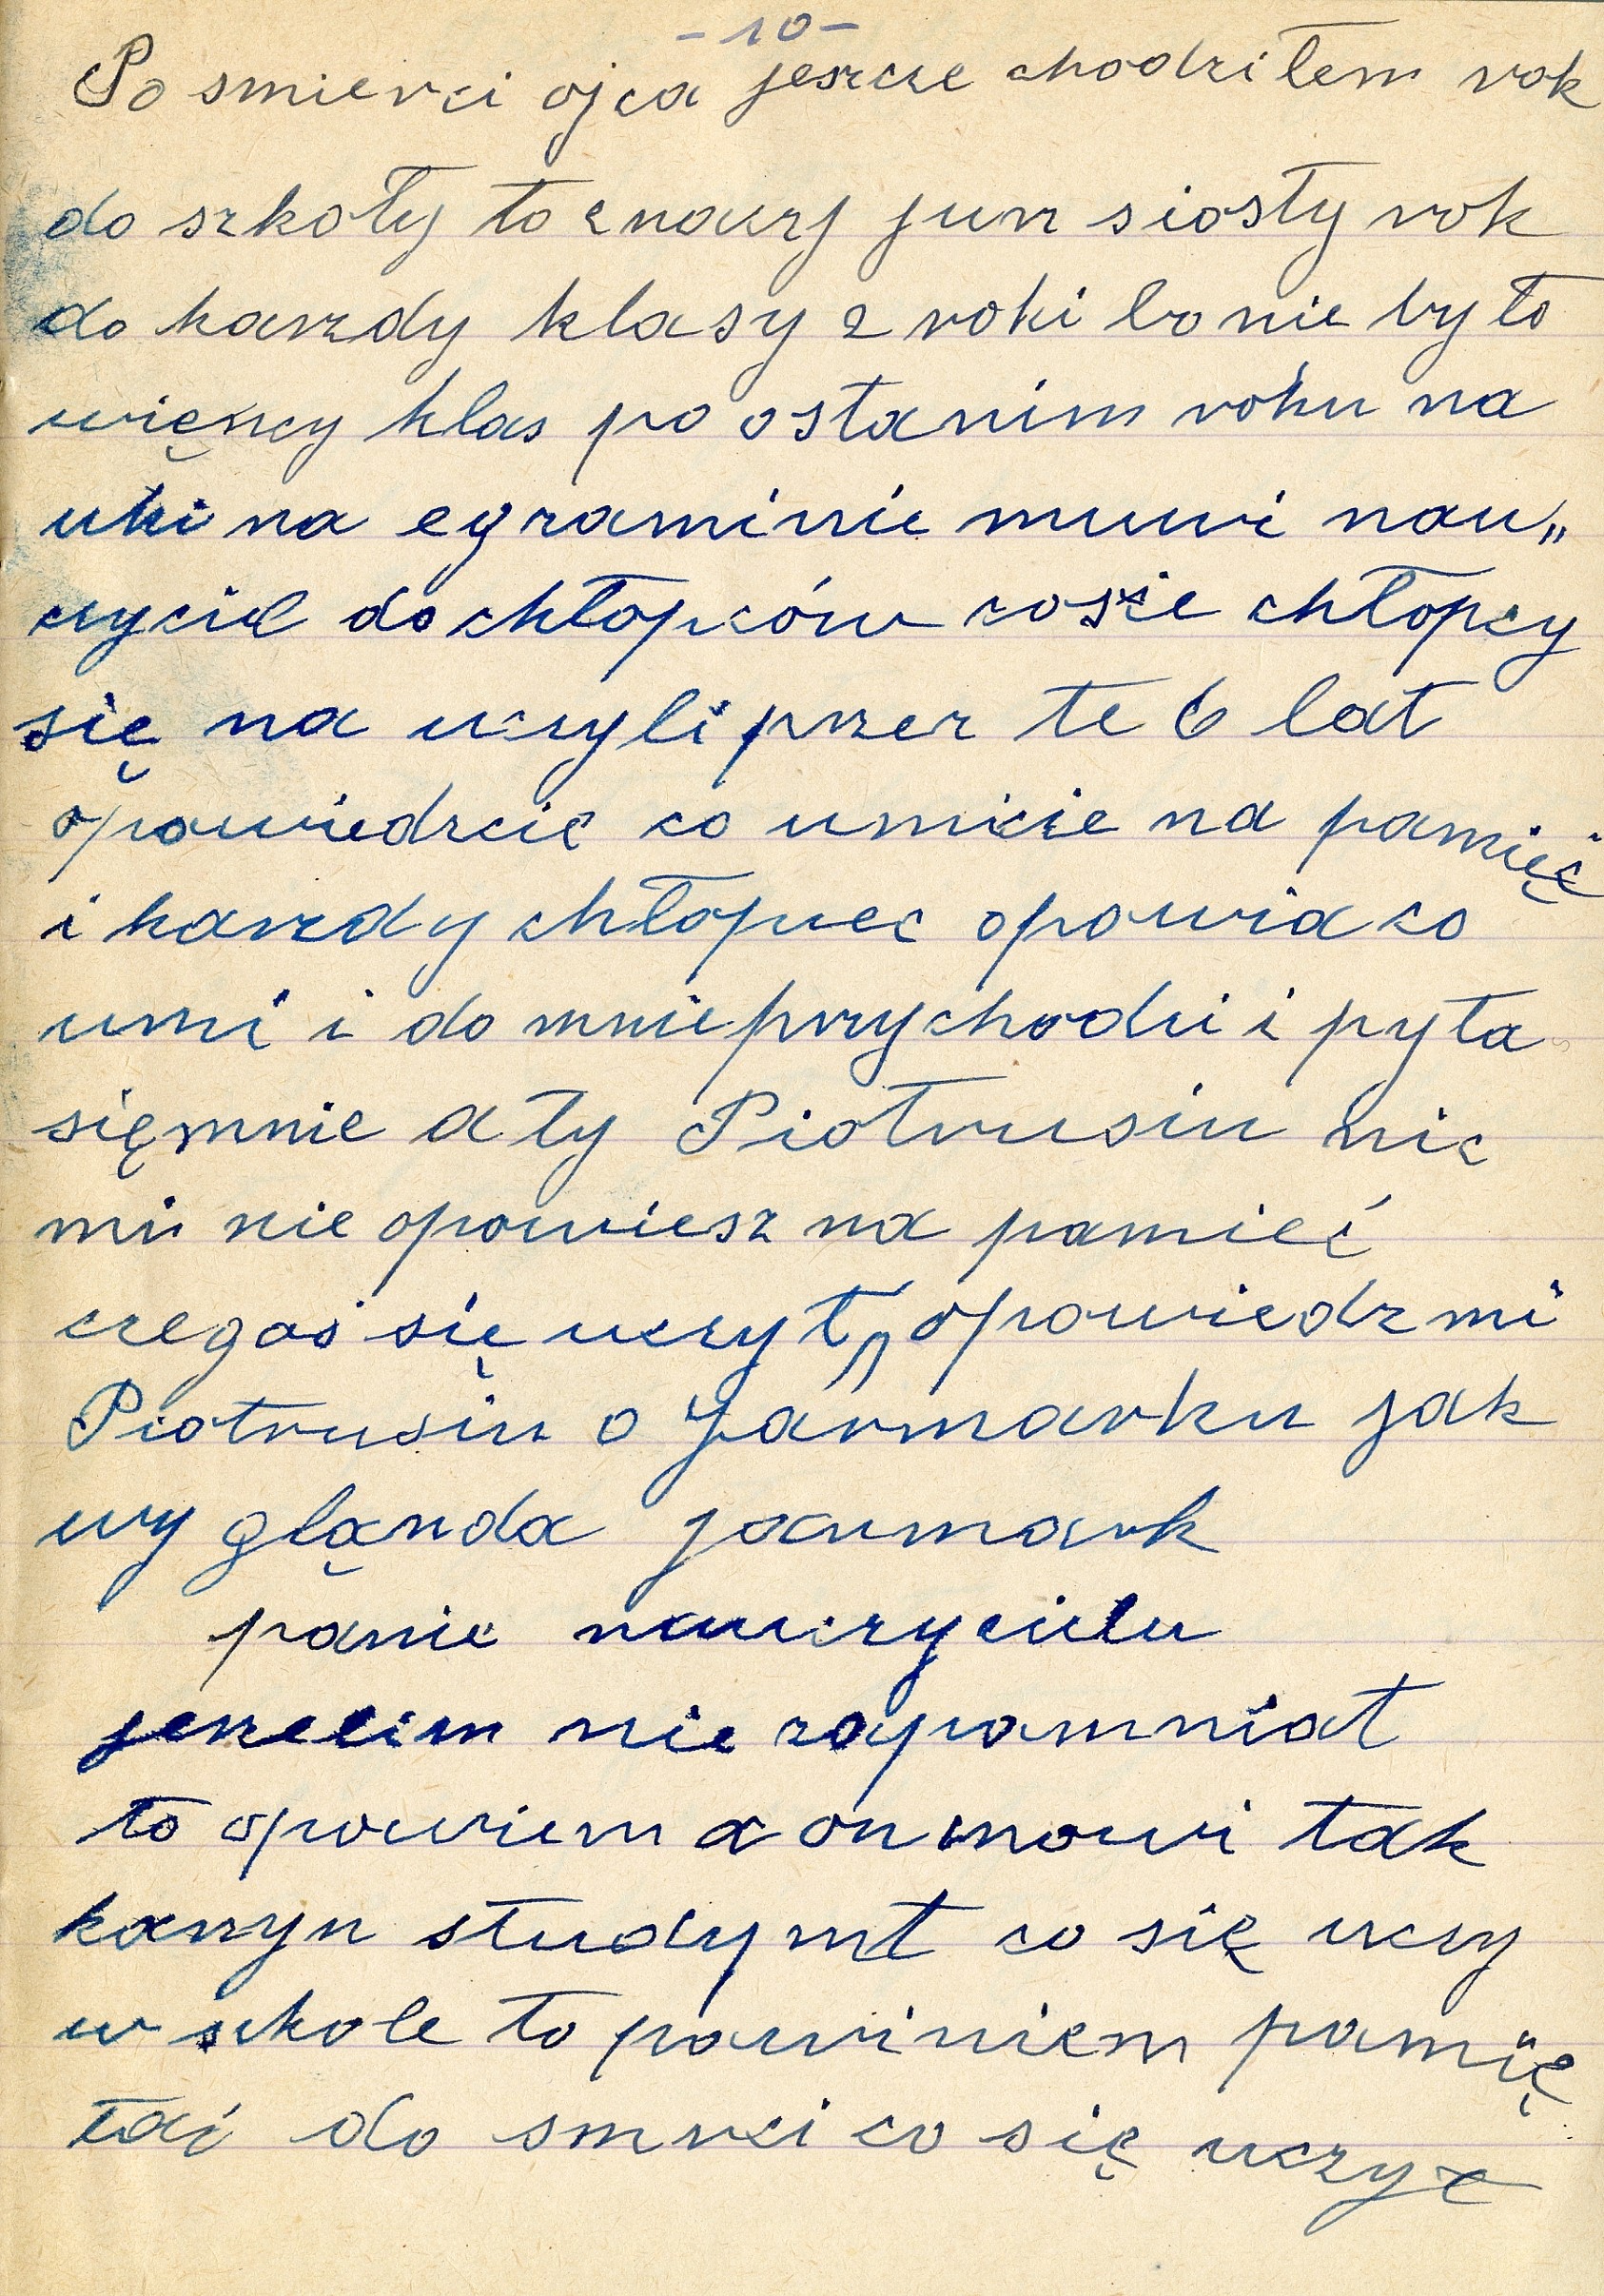 -10-
Po smierci ojca jeszcze chodziłem rok
do szkoły to znaczy juz siosty rok
do karzdy klasy 2 roki bo nie było
więncy klas po ostanim roku na
uki na egzaminie muwi nau„
czyciel do chłopców cosie chłopcy
się na uczyli przez te 6 lat
opowiedzcie co umicie na pamięć
i karzdy chłopiec opowia co
umi i do mnie przychodzi i pyta
sięmnie a ty Piotrusiu nic
mi nie opowiesz na pamieć
czegoś się uczył, opowiedz mi
Piotrusiu o Jarmarku jak
wy gląnda jarmark
panie nauczycielu
jezelim nie zapomniał
to opowiem a on mowi tak
karzyn studynt co się uczy
w skole to powiniem pamię
tać do smirci co się uczy